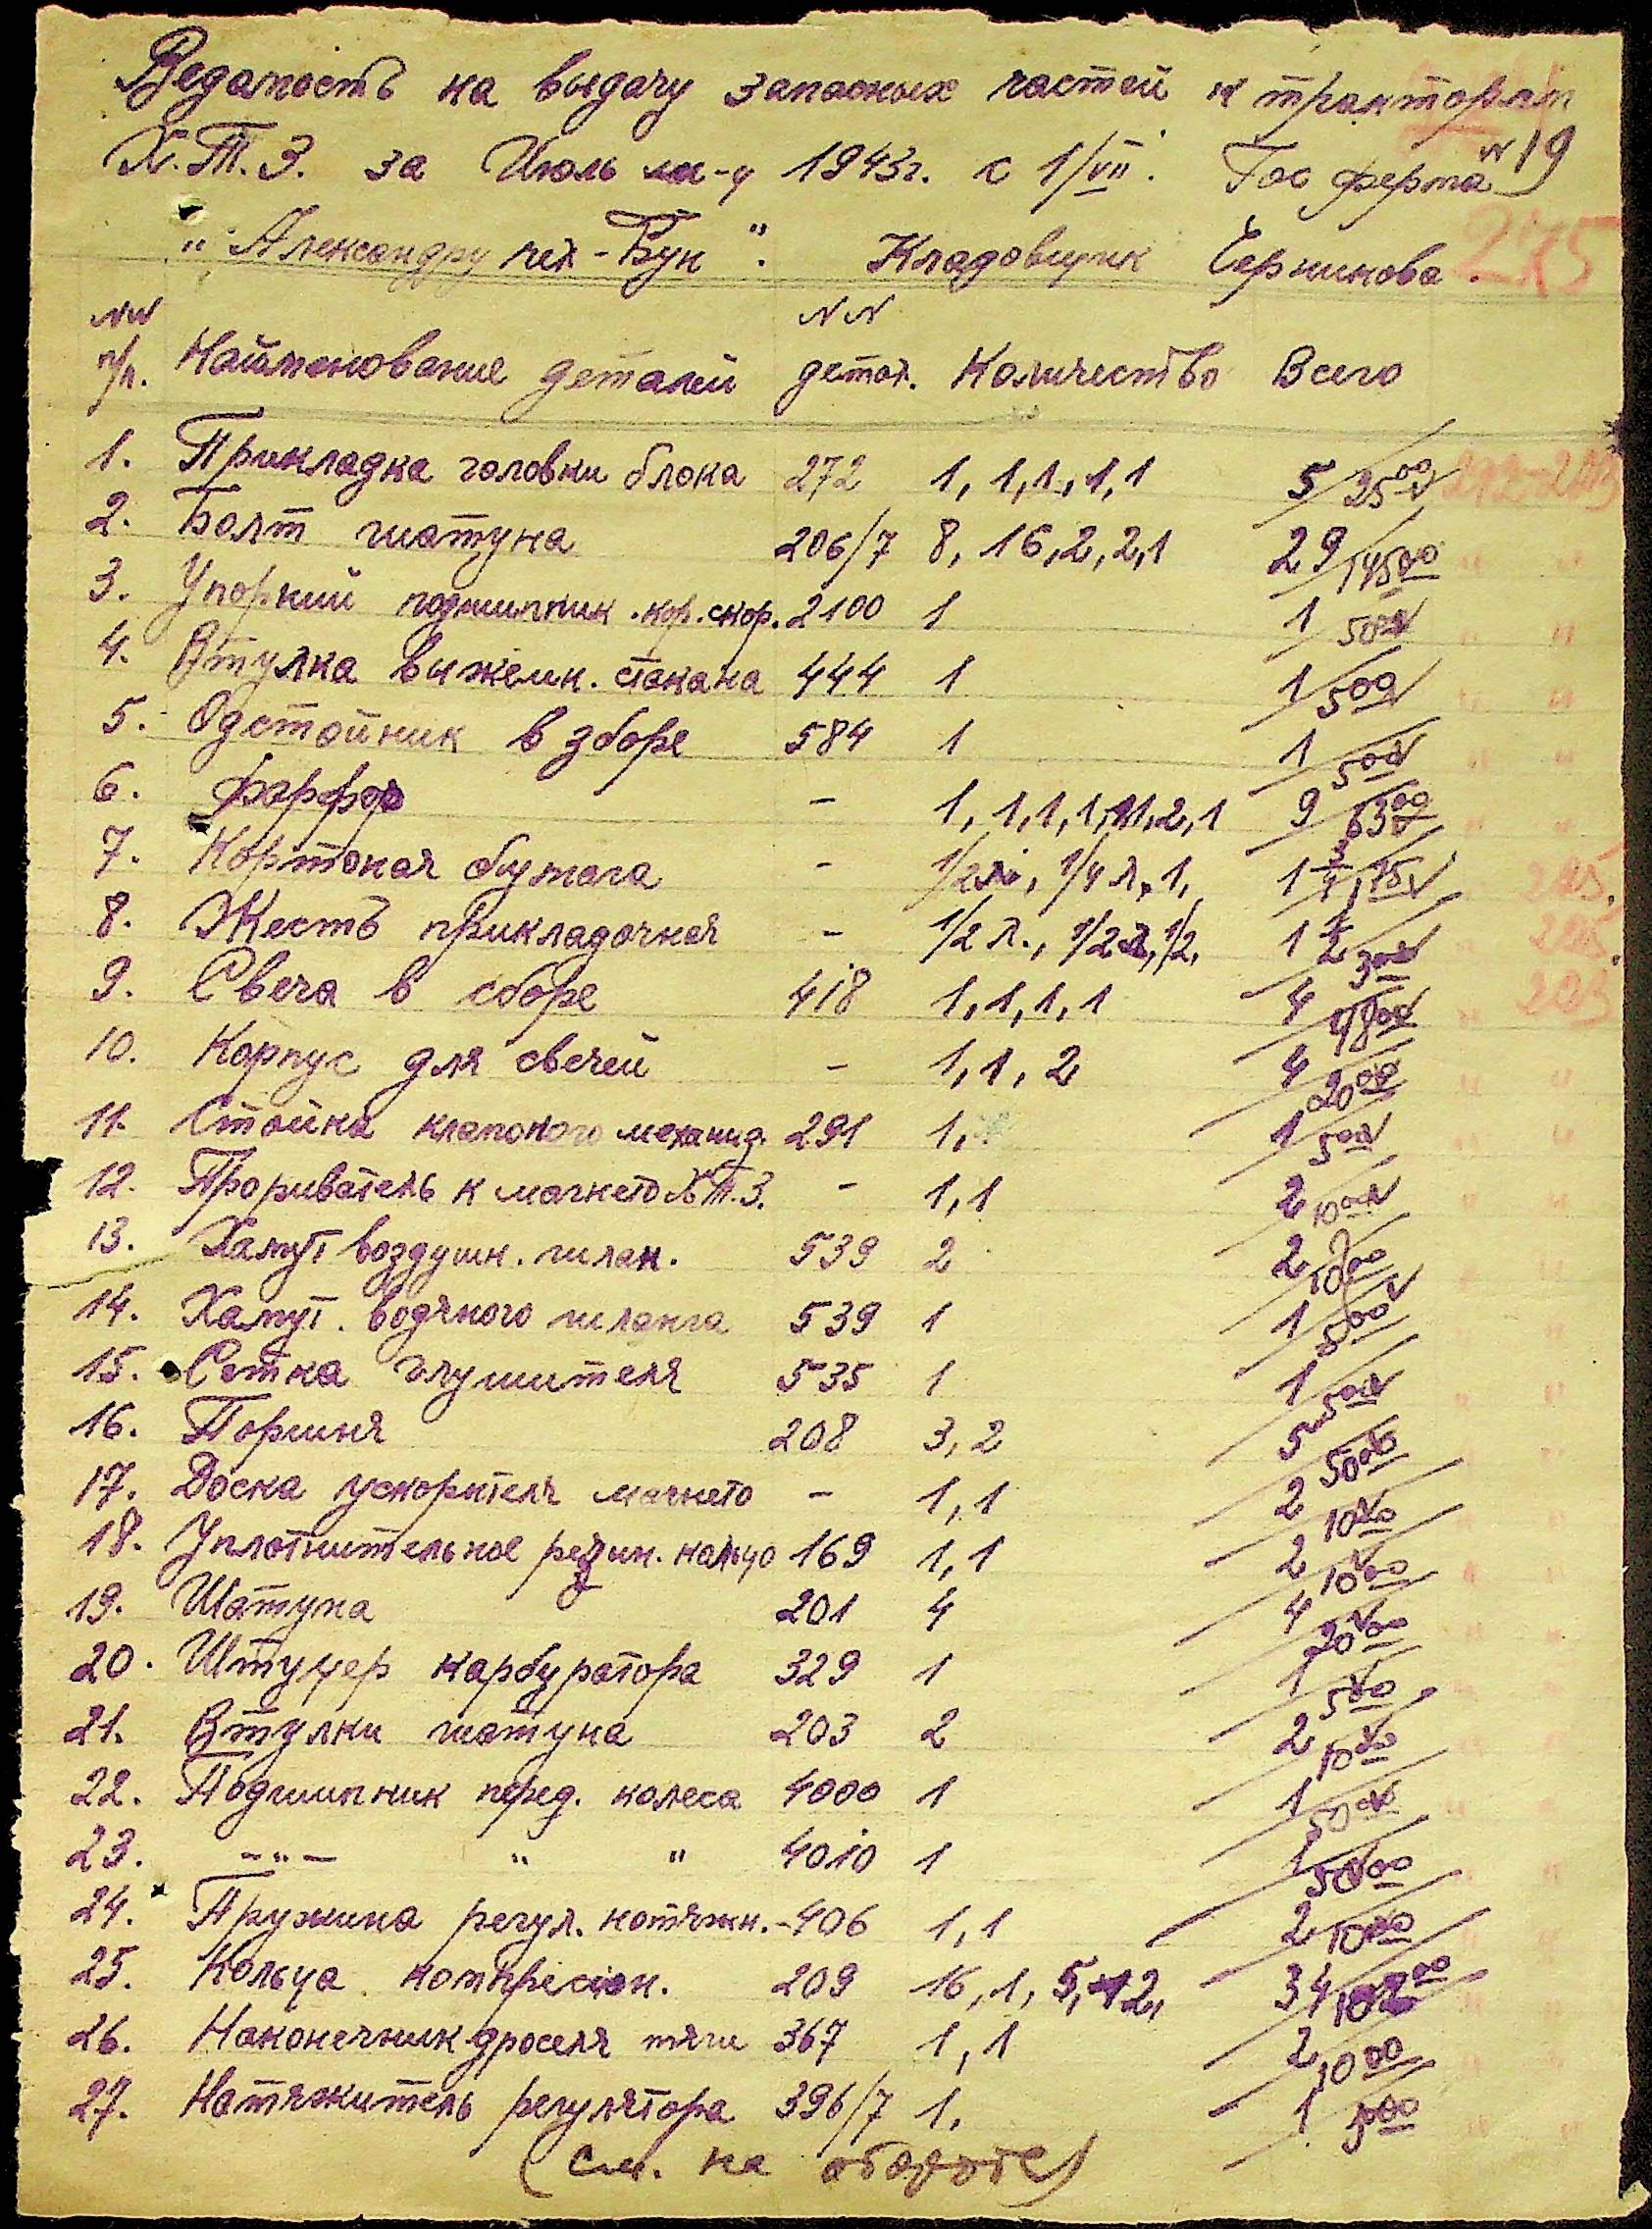 Ведомость на выдачу запасных частей к тракторам
Х.Т.З. за Июль м-ц 1943г. с 1/VII. Гос ферма №19
"Александру чел-Бун". Кладовщик Черникова 275
NN п/п. Найменование деталей NN детал. Количество Всего
1. Прикладка головки блока 272 1, 1, 1, 1, 1 5/25 00
2. Болт шатуна 206/7 8, 16, 2, 2, 1 29/145 00
3. Упорний подшипник кор. скор. 2100 1 1/50 00
4. Втулка выжемн. стакана 444 1 1/5 00
5. Одстойник в зборе 584 1 1/5 00
6. фарфор - 1, 1, 1, 1, 1, 1, 2, 1 9/63 00
7. Картоная бумага - 1/2 л., 1/4 л, 1, 1 3/4
8. Жесть прикладочная - 1/2 л., 1/2 л, 1/2, 1 1/2 / 3 00
9. Свеча в сборе 418 1, 1, 1, 1 4/48 00
10. Корпус для свечей - 1, 1, 2 4/20 00
11. Стойка клапоного механид. 291 1, 1/5 00
12. Прориватель к магнето Х.Т.З. - 1, 1 2/10 00
13. Хамут воздушн. шлан. 539 2 2/10 00
14. Хамут. водяного шланга 539 1 1/5 00
15. Сетка глушителя 535 1 1/5 00
16. Поршня 208 3, 2 5/50 00
17. Доска ускорителя магнето - 1, 1 2/10 00
18. Уплотнительное резин. кольцо 169 1, 1 2/10 00
19. Шатуна 201 4 4/20 00
20. Штуцер карбуратора 329 1 1/5 00
21. Втулки шатуна 203 2 2/10 00
22. Подшипник перед. колеса 4000 1 1/50 00
23. -"- " " 4010 1 1/50 00
24. Пружина регул. натяжн. -406 1, 1 2/10 00
25. Кольца компресион. 209 16, 1, 5, 12, 34/102 00
26. Наконечник дроселя тяги 367 1, 1 2/10 00
27. Натяжитель регулятора 396/7 1, 1/5 00
(см. на обороте)